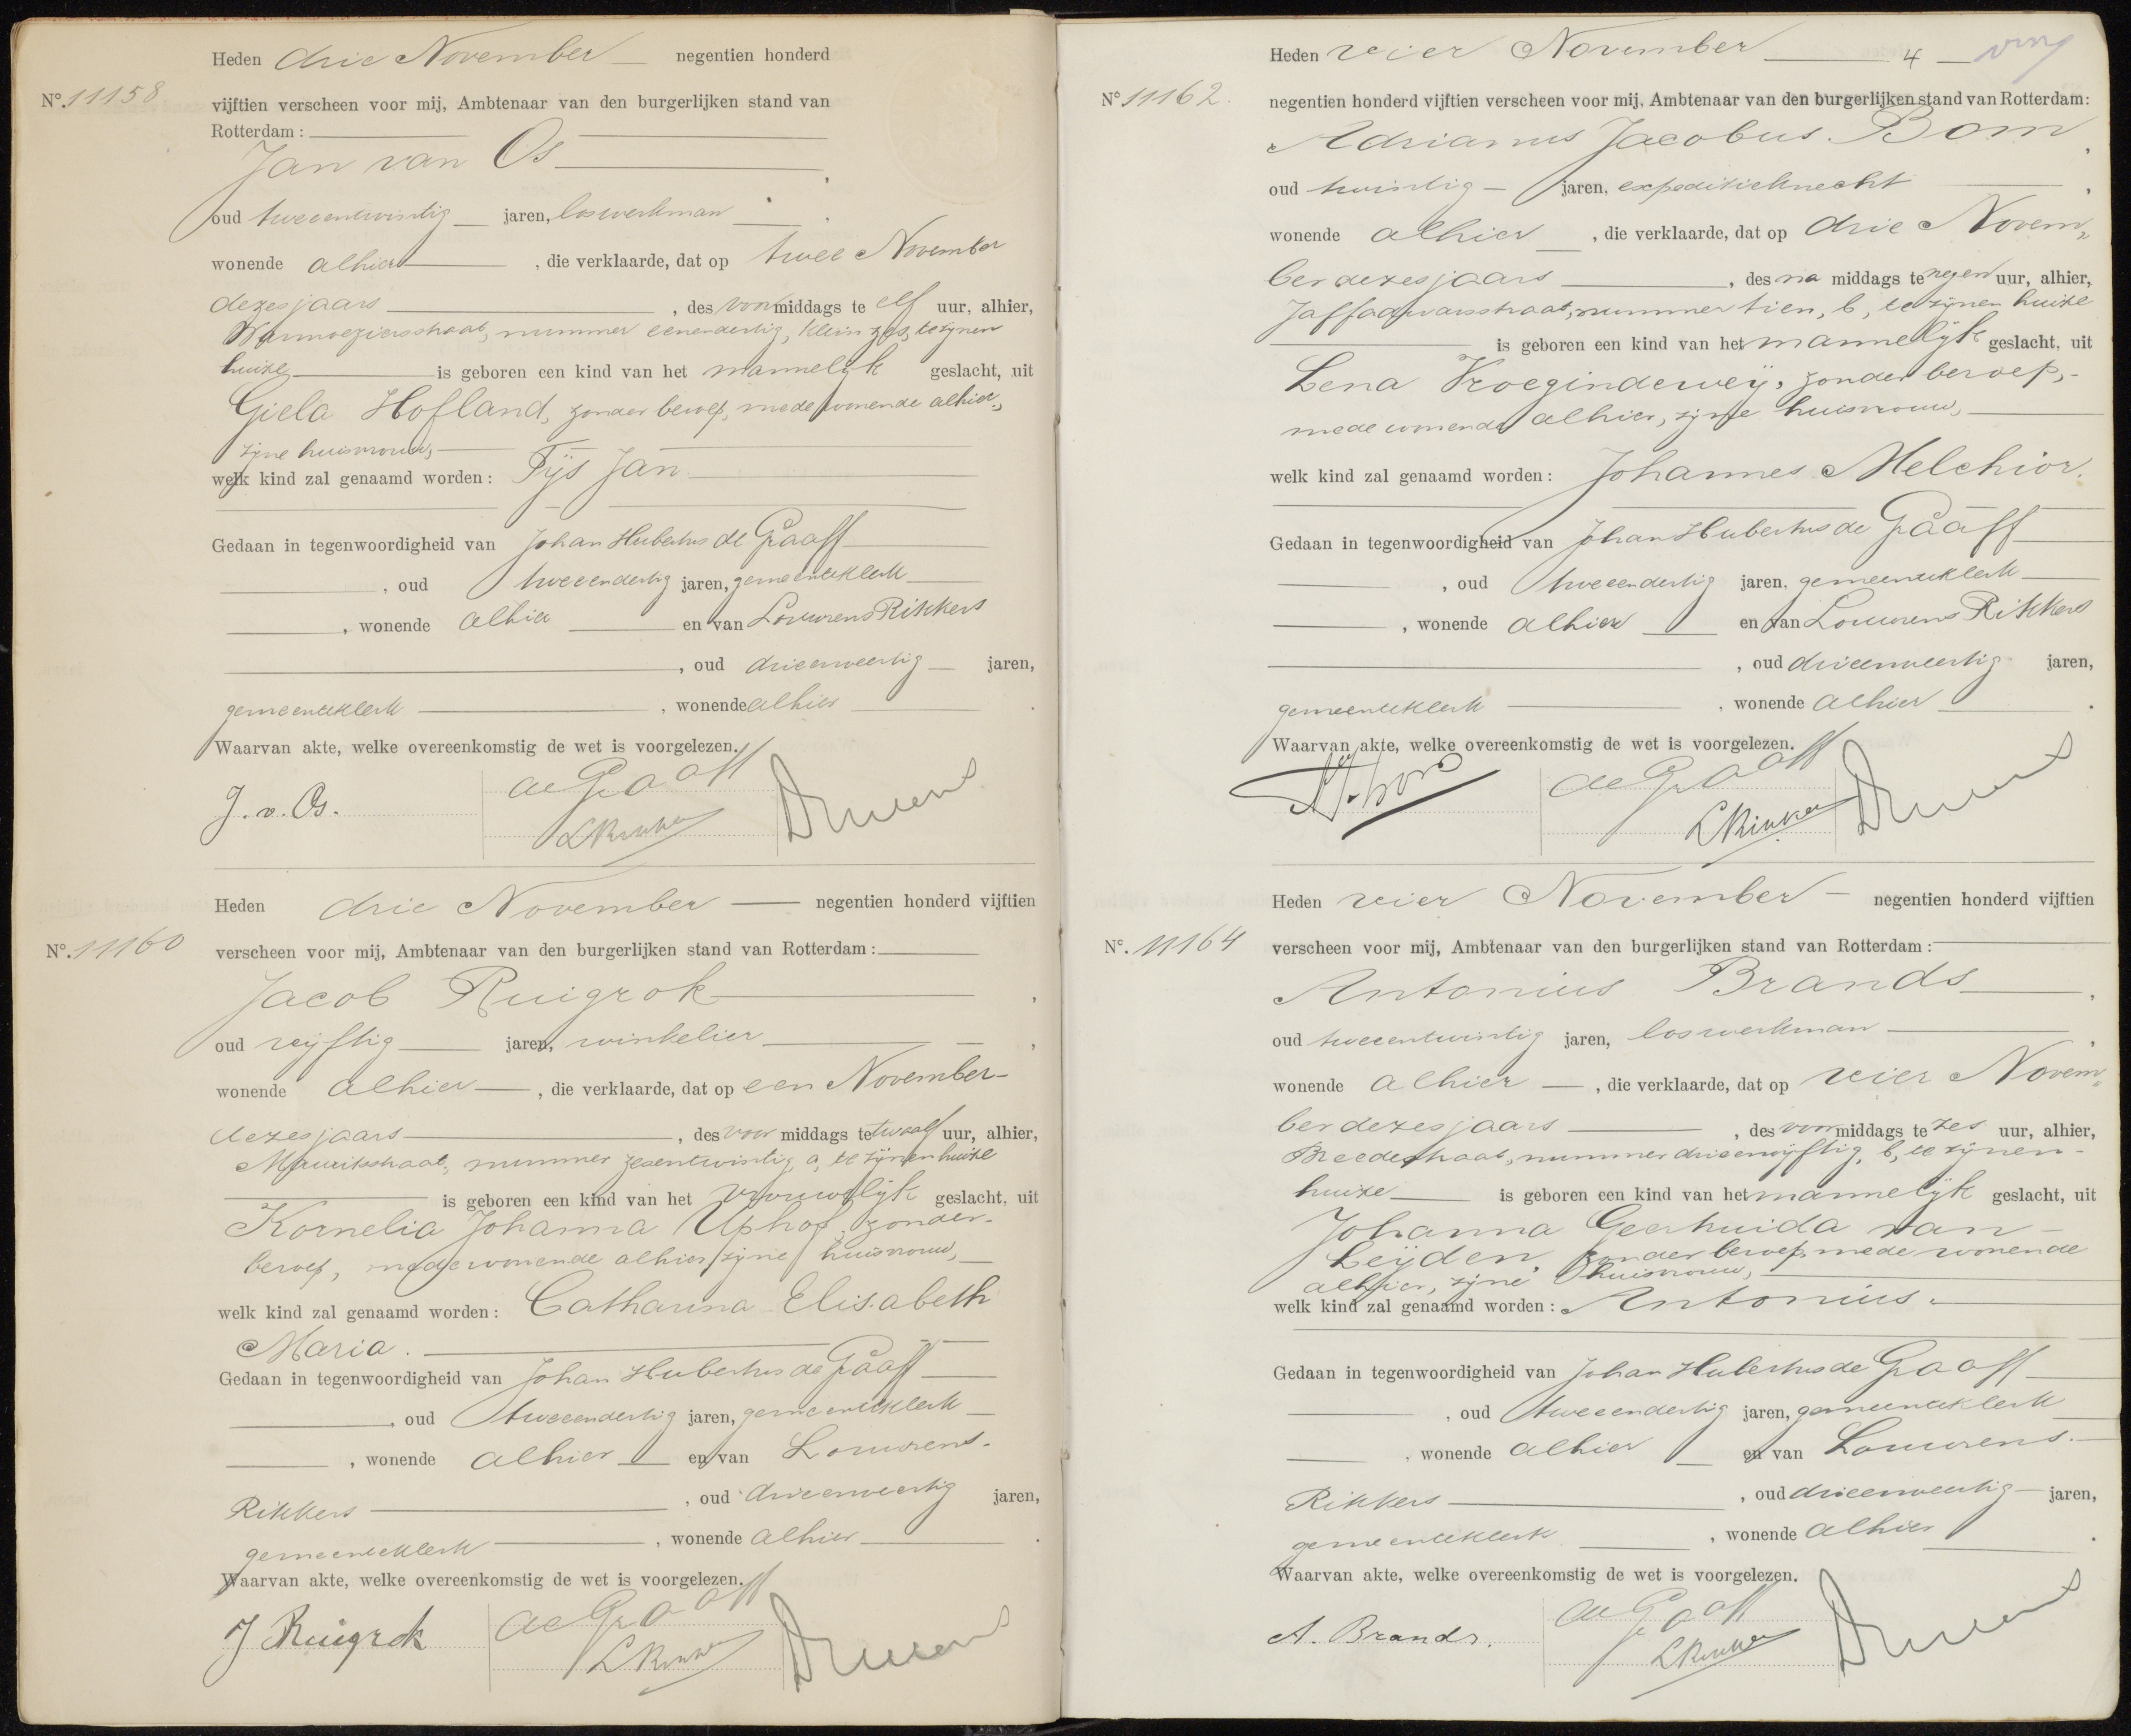 Heden drie November negentien honderd
No. 11158 vijftien verscheen voor mij, Ambtenaar van den burgerlijken stand van
Rotterdam:
Jan van Os,
oud tweeentwintig jaren, loswerkman,
wonende alhier, die verklaarde, dat op twee November
dezes jaars, des voormiddags te elf uur, alhier,
Warmoezierstraat, nummer eenendertig, klein zes, te zijnen
huize is geboren een kind van het mannelijk geslacht, uit
Giela Hofland, zonder beroep, mede wonende alhier,
zijne huisvrouw,
welk kind zal genaamd worden: Tijs Jan.
Gedaan in tegenwoordigheid van Johan Hubertus de Graaff
, oud tweeendertig jaren, gemeenteklerk
, wonende alhier en van Lourens Rikkers
, oud drieenveertig jaren,
gemeenteklerk, wonende alhier.
Waarvan akte, welke overeenkomstig de wet is voorgelezen.
J. v. Os. de Graaff
L Rikkers
Heden drie November negentien honderd vijftien
No. 11160 verscheen voor mij, Ambtenaar van den burgerlijken stand van Rotterdam:
Jacob Ruigrok,
oud vijftig jaren, winkelier,
wonende alhier, die verklaarde, dat op een November
dezes jaars, des voor middags te twaalf uur, alhier,
Mauritsstraat, nummer zesentwintig, a, te zijnen huize
is geboren een kind van het vrouwelijk geslacht, uit
Kornelia Johanna Uphof, zonder
beroep, mede wonende alhier, zijne huisvrouw,
welk kind zal genaamd worden: Catharina Elisabeth
Maria.
Gedaan in tegenwoordigheid van Johan Hubertus de Graaff
, oud tweeendertig jaren, gemeenteklerk
, wonende alhier en van Lourens
Rikkers, oud drieenveertig jaren,
gemeenteklerk, wonende alhier.
Waarvan akte, welke overeenkomstig de wet is voorgelezen.
J Ruigrok de Graaff
L Rikkers
Heden vier November 4
No 11162. negentien honderd vijftien verscheen voor mij, Ambtenaar van den burgerlijken stand van Rotterdam:
Adrianus Jacobus Bom,
oud twintig jaren, expeditieknecht,
wonende alhier, die verklaarde, dat op drie Novem„
ber dezes jaars, des na middags te negen uur, alhier,
Jaffadwarsstraat, nummer tien, b, te zijnen huize
is geboren een kind van het mannelijk geslacht, uit
Lena Vroegindeweij, zonder beroep,
mede wonende alhier, zijne huisvrouw,
welk kind zal genaamd worden: Johannes Melchior.
Gedaan in tegenwoordigheid van Johan Hubertus de Graaff
, oud tweeendertig jaren, gemeenteklerk
, wonende alhier en van Lourens Rikkers
, oud drieenveertig jaren,
gemeenteklerk, wonende alhier.
Waarvan akte, welke overeenkomstig de wet is voorgelezen.
de Graaff
L Rikkers
Heden vier November negentien honderd vijftien
No. 11164 verscheen voor mij, Ambtenaar van den burgerlijken stand van Rotterdam:
Antonius Brands,
oud tweeentwintig jaren, loswerkman,
wonende alhier, die verklaarde, dat op vier Novem„
ber dezes jaars, des voormiddags te zes uur, alhier,
Breedestraat, nummer drieenvijftig, b, te zijnen
huize is geboren een kind van het mannelijk geslacht, uit
Johanna Geertruida van
Leijden, zonder beroep, mede wonende
alhier, zijne huisvrouw,
welk kind zal genaamd worden: Antonius.
Gedaan in tegenwoordigheid van Johan Hubertus de Graaff
, oud tweeendertig jaren, gemeenteklerk
, wonende alhier en van Lourens
Rikkers, oud drieenveertig jaren,
gemeenteklerk, wonende alhier.
Waarvan akte, welke overeenkomstig de wet is voorgelezen.
A. Brands. de Graaff
L Rikkers